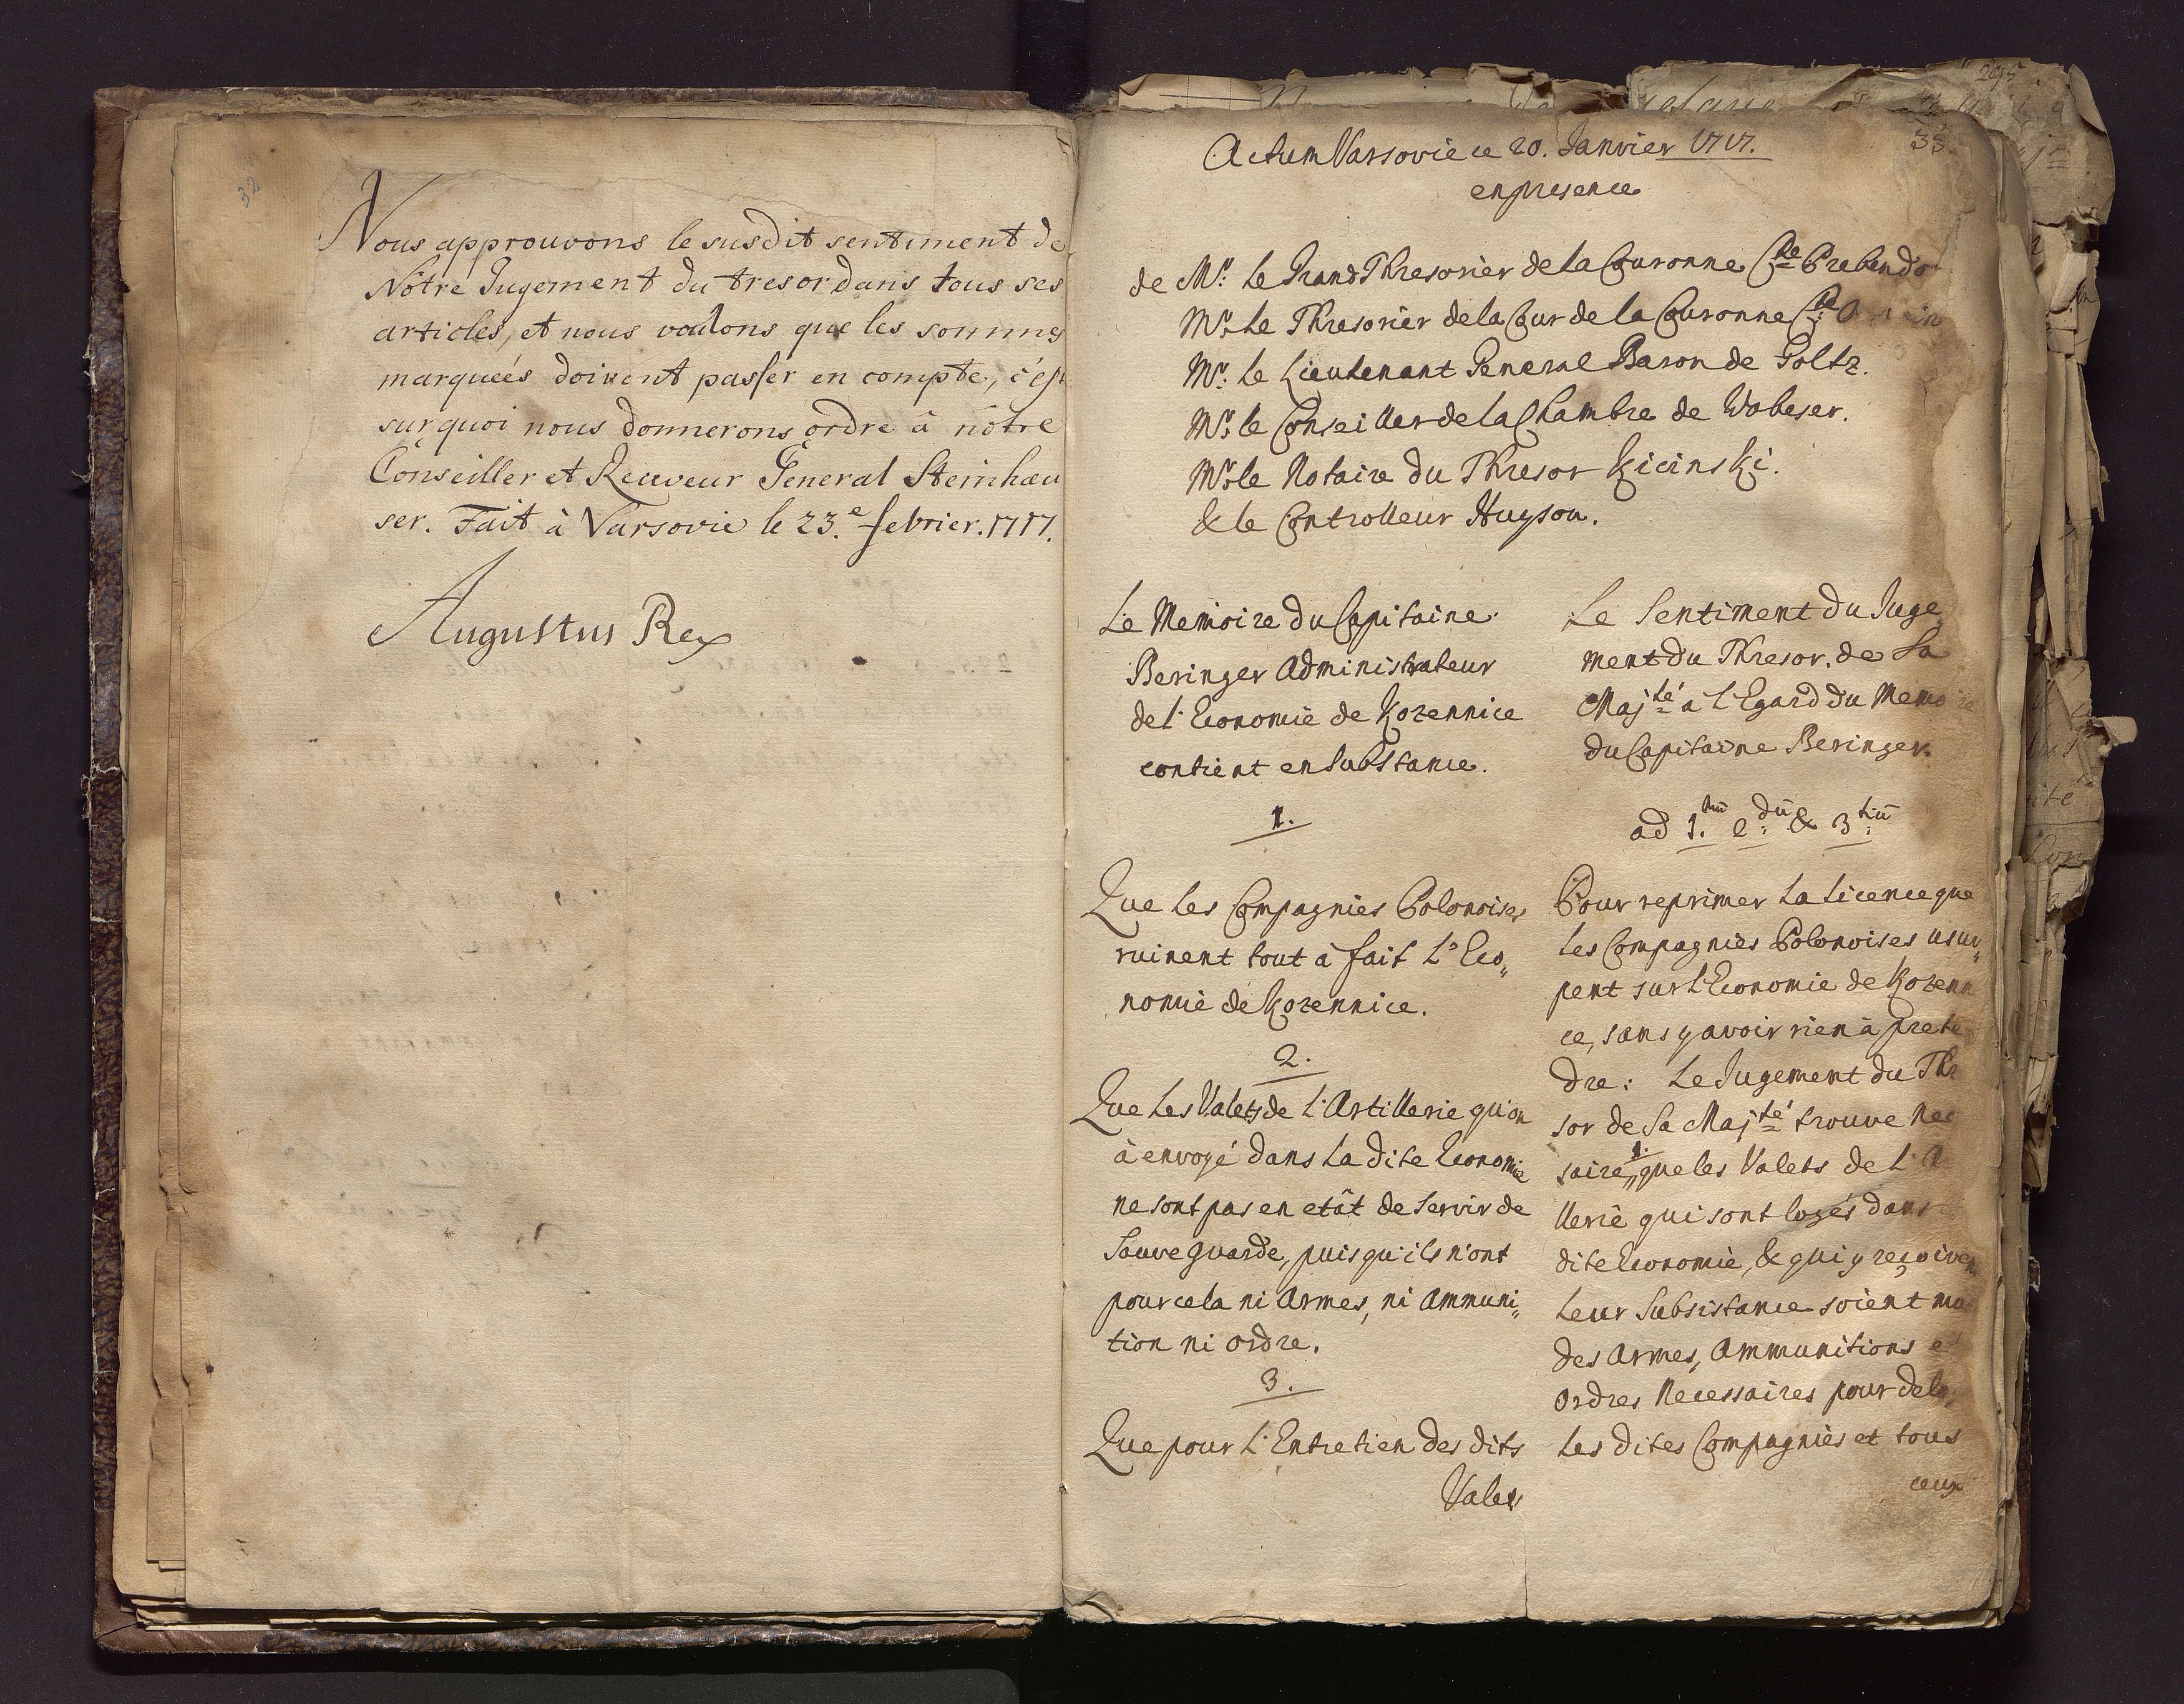 32
Nous approuvons le susdit sentiment de
Nôtre Jugement du tresor dans tous ses
articles, et nous voulons que les sommes
marqueés doivent passer en compte, c'est
surquoi nous donnerons ordre â nôtre
Conseiller et Receveur General Steinhæu
ser. Fait à Varsovie le 23.e febrier. 1717.
Augustus Rex
295
33
Actum Varsovie ce 20. Janvier 1717.
en presence
de Mr. le Grand Thresorier de la Couronne Cte Prebendo
Mr. le Thresorier de la Cour de la Couronne Cte
Mr. le Lieutenant General Baron de Goltz.
Mr. le Conseiller de la Chambre de Wobeser.
Mr. le Notaire du Thresor Kicinski.
& le Controlleur Huyson.
Le Memoire du Capitaine
Beringer Administrateur
de l'Economie de Kozennice
contient en Substance.
1.
Que les Compagnies Polonoises
ruinent tout à fait l'Eco„
nomie de Kozennice.
2.
Que les Valets de l'Artillerie qu'on
à envoyé dans la dite Economie
ne sont pas en etât de Servir de
Sauve guarde, puis qu'ils n'ont
pour cela ni Armes, ni Ammuni„
tion ni ordre.
3.
Que pour l'Entretien des dits
Valets
Le Sentiment du Juge
ment du Thresor, de Sa
Majté a l'Egard du Memoire
du Capitaine Beringer.
ad 1.mū 2.dū & 3.tiū
Pour reprimer la licence que
les Compagnies Polonoises usur„
pent sur l'Economie de Kozenn
ce, sans y avoir rien à prete
dre: Le Jugement du Thr
sor de Sa Majté trouve Nec
saire, 1. que les Valets de l'A
llerie qui sont logés dans
dite Economie, & qui y reçoivent
leur Subsistance soient mu
des Armes, Ammunitions et
ordres Necessaires pour delo
les dites Compagnies et tous
ceux